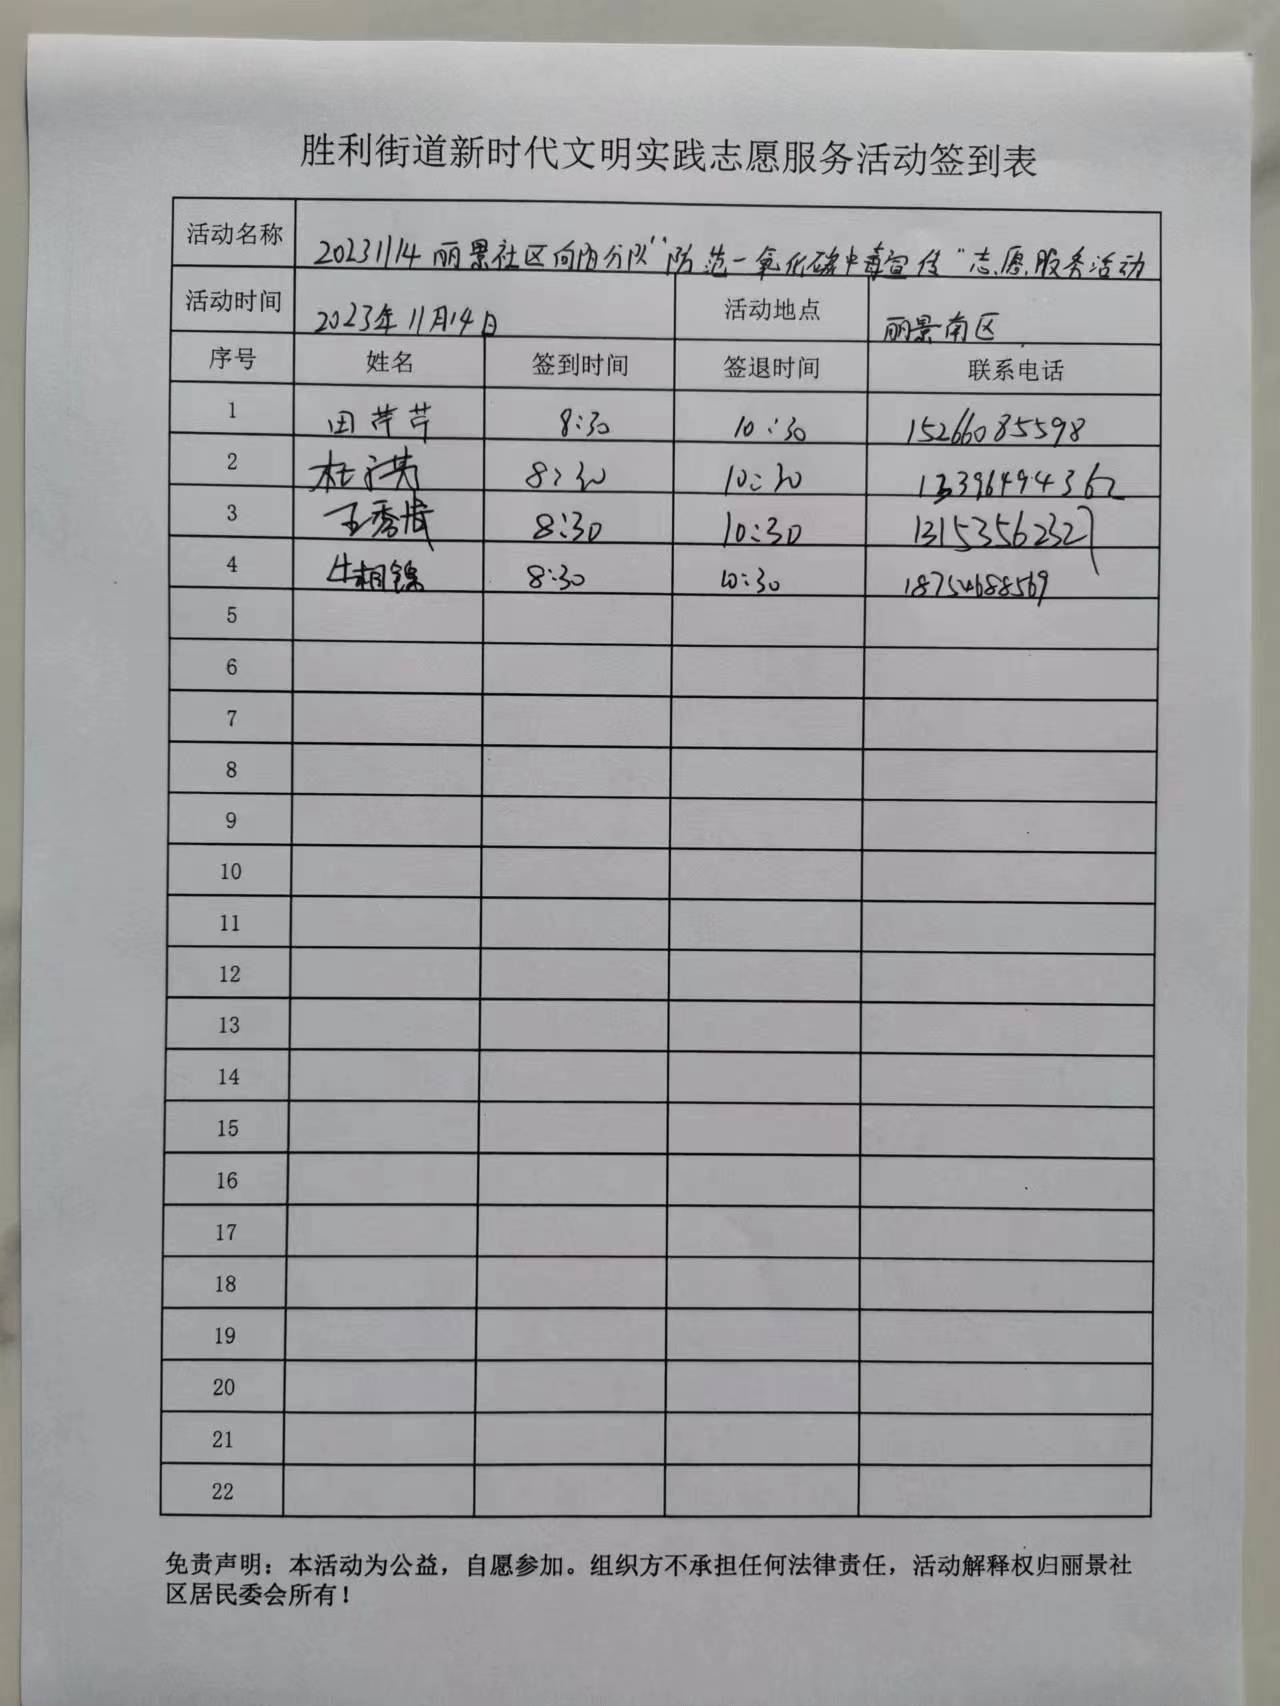 胜利街道新时代文明实践志愿服务活动签到表
活动名称 20231114丽景社区向阳分队“防范一氧化碳中毒宣传”志愿服务活动
活动时间 2023年11月14日 活动地点 丽景南区
序号 姓名 签到时间 签退时间 联系电话
1 田芹芹 8:30 10:30 15266085598
2 杜 8:30 10:30
3 王秀 8:30 10:30 13153562327
4 牛相锦 8:30 10:30 18754688569
5
6
7
8
9
10
11
12
13
14
15
16
17
18
19
20
21
22
免责声明：本活动为公益，自愿参加。组织方不承担任何法律责任，活动解释权归丽景社
区居民委会所有！